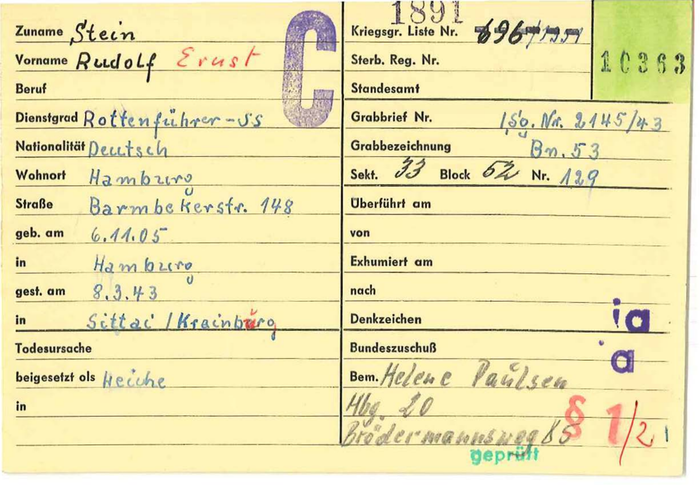 Zuname Stein
Vorname Rudolf Ernst
Beruf
Dienstgrad Rottenführer-SS
Nationalität Deutsch
Wohnort Hamburg
Straße Barmbekerstr. 148
geb. am 6.11.05
in Hamburg
gest. am 8.3.43
in Sittai / Krainburg
Todesursache
beigesetzt als Leiche
in
C
1891
Kriegsgr. Liste Nr.
10363
Sterb. Reg. Nr.
Standesamt
Grabbrief Nr. Nr. 2145/43
Grabbezeichnung Bn. 53
Sekt. 33 Block 62 Nr. 129
Überführt am
von
Exhumiert am
nach
Denkzeichen ia
Bundeszuschuß a
Bem. Helene Paulsen
Hbg. 20
Brödermannsweg 85
§ 1/2
geprüft